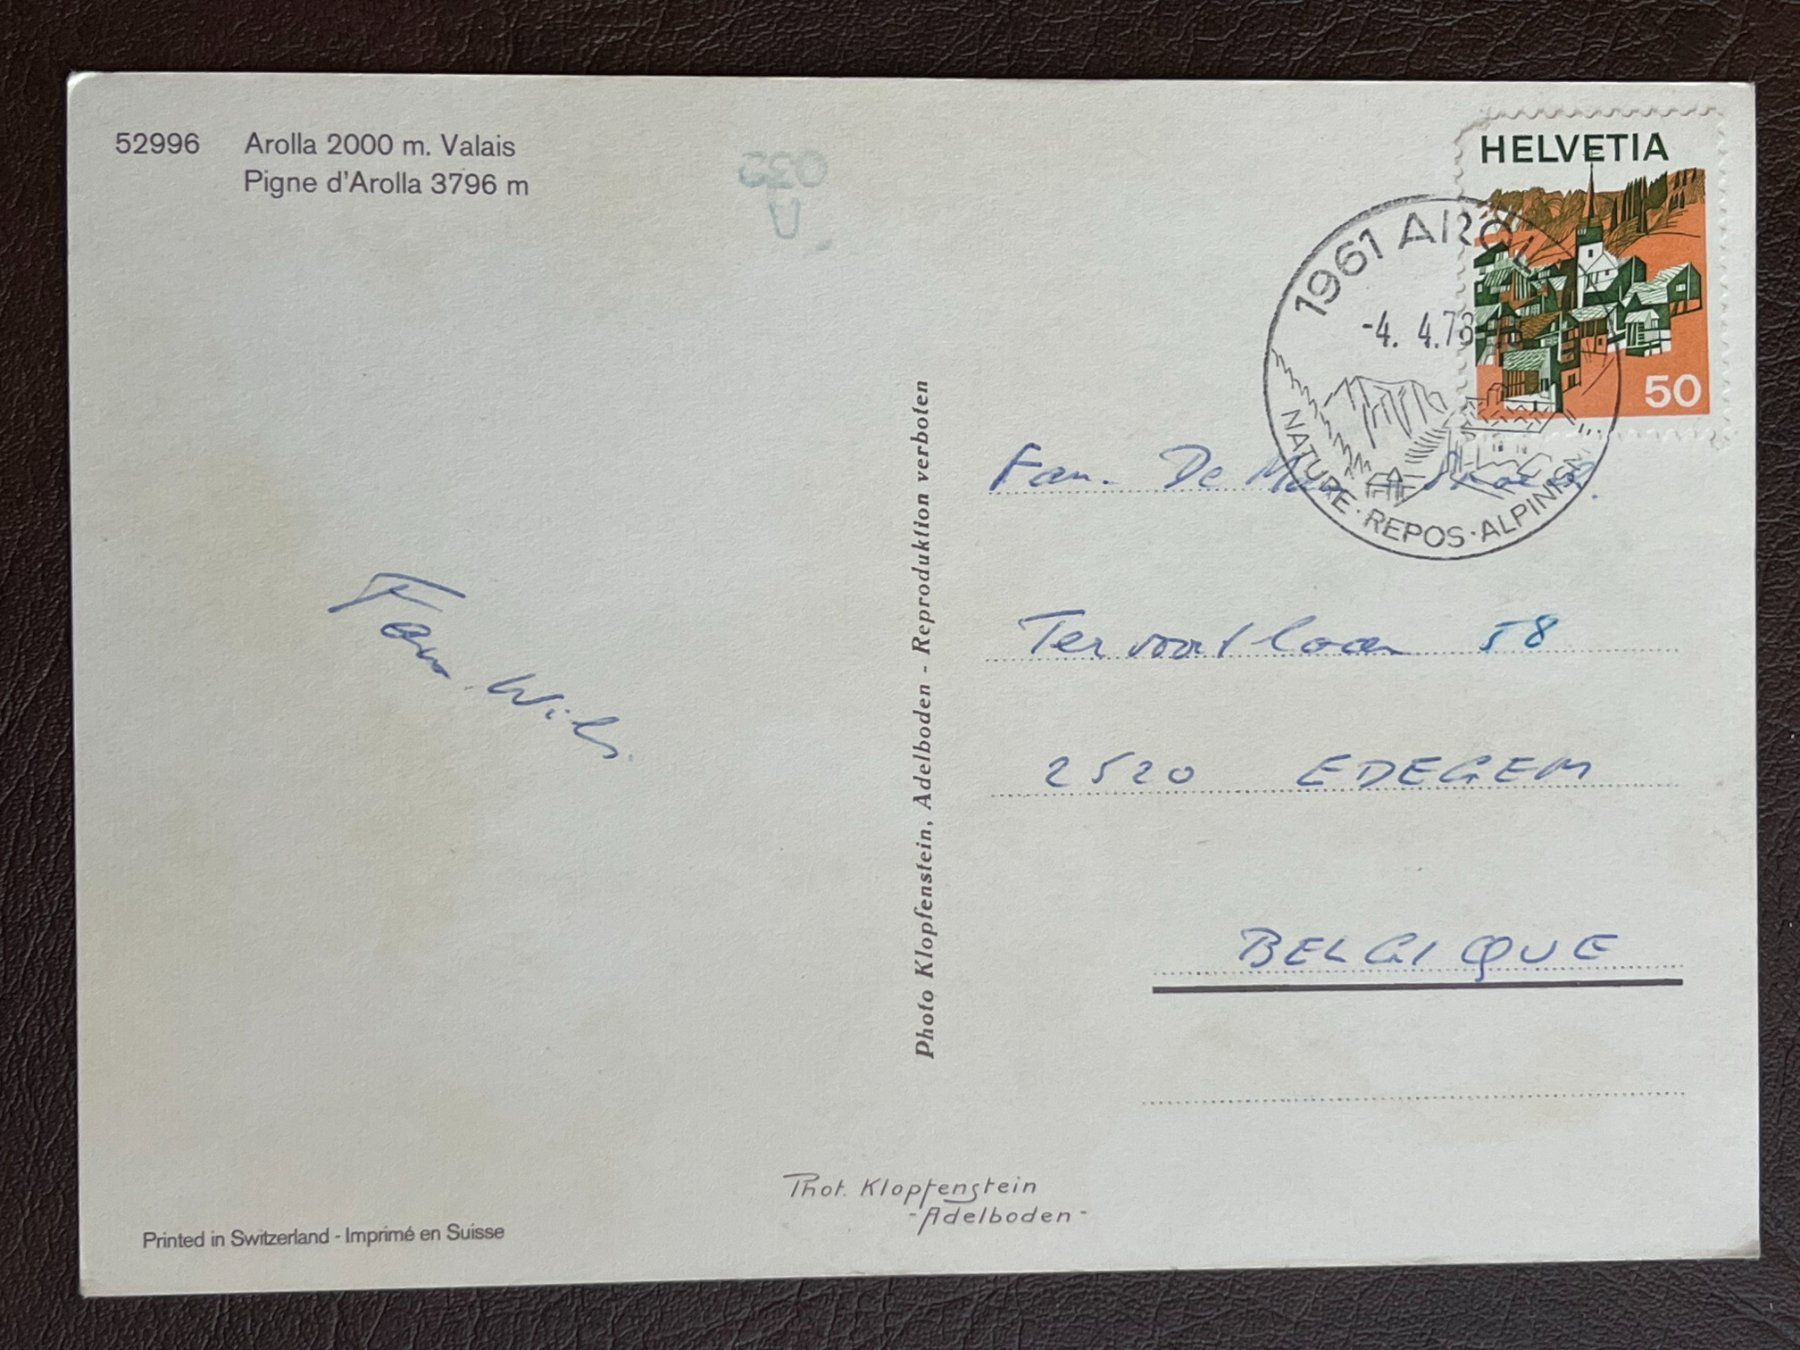 52996 Arolla 2000 m. Valais
Pigne d'Arolla 3796 m
HELVETIA
50
1961 AROL
-4. 4.78
NATURE · REPOS · ALPINIS
Fam. Wils.
Photo Klopfenstein, Adelboden - Reproduktion verboten
Fam. De
Tervoortlaan 58
2520 EDEGEM
BELGIQUE
Phot. Klopfenstein
- Adelboden -
Printed in Switzerland - Imprimé en Suisse